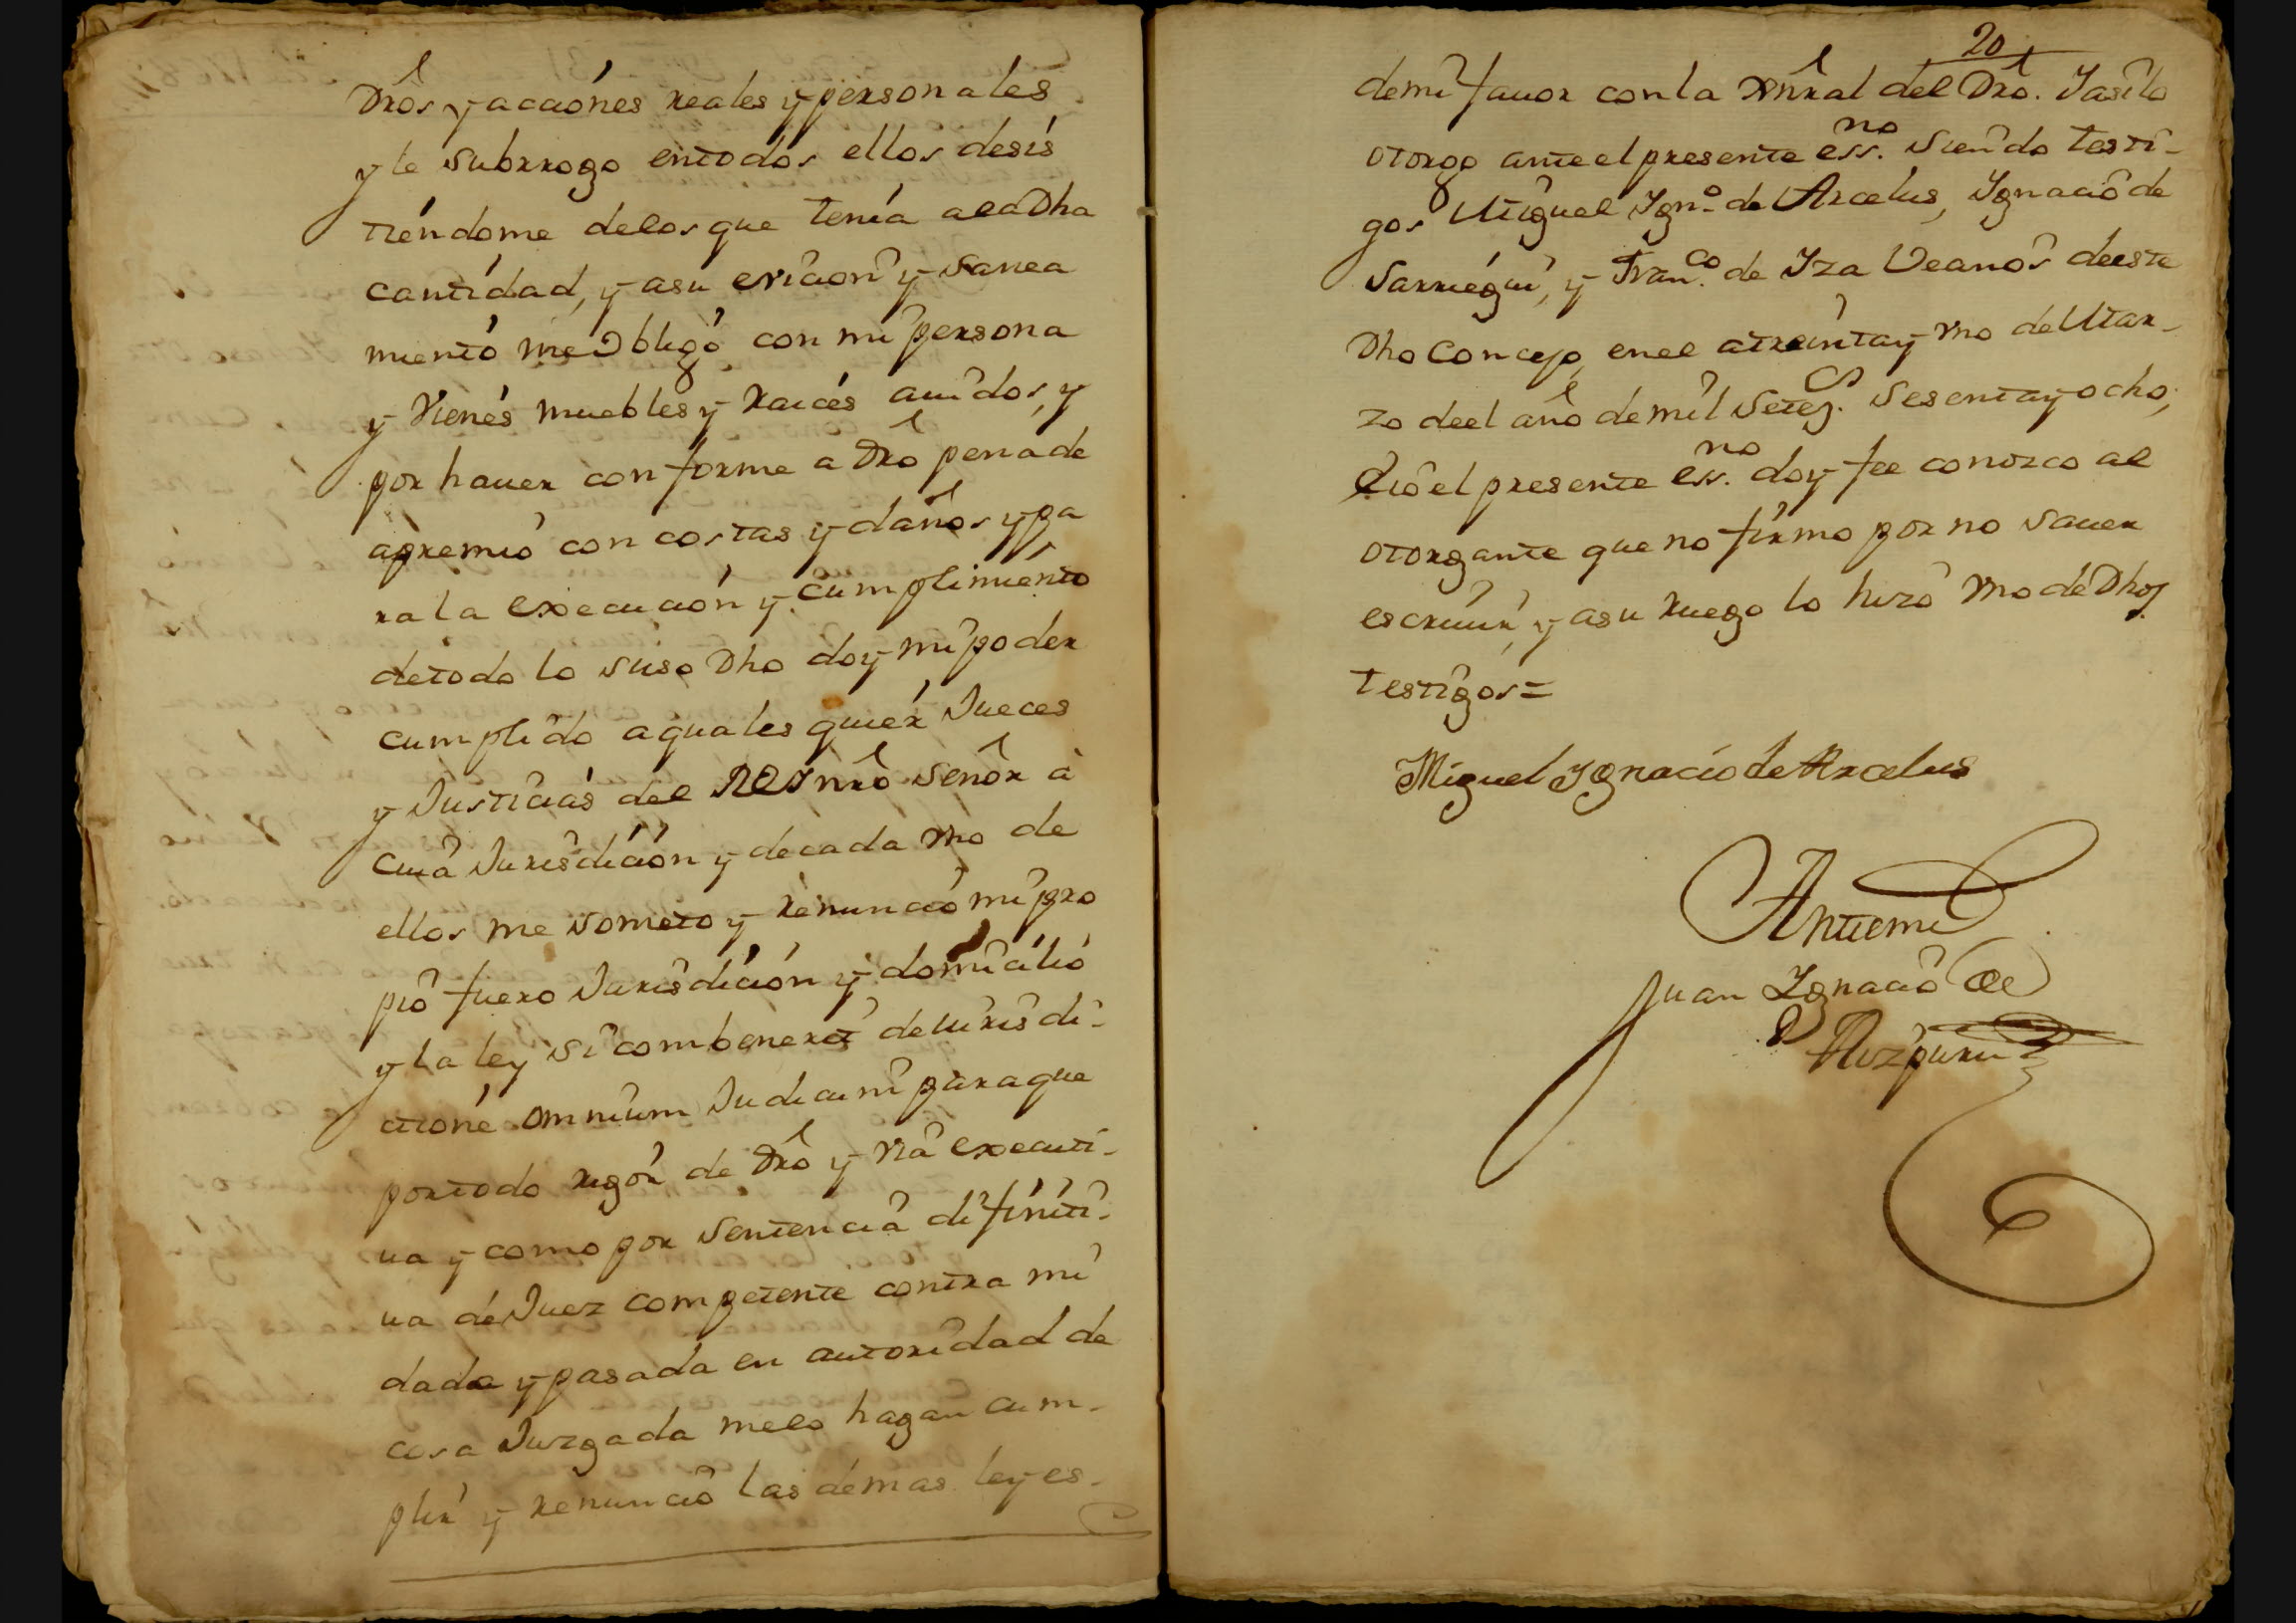 Dr̃os y acciónes reales y personales
y le subrrogo entodos ellos desis
tiéndome delos que tenía ala Dha
cantidad, y asu eviction y sanea
miento me Obligó con mi persona
y Vienes muebles y Raices auidos, y
por hauer conforme a Dr̃o pena de
apremio con costas y daños y pa
ra la execucion y cumplimiento
detodo lo suso Dho doy mi poder
cumplido a quales quier Jueces
y Justicias del REY nr̃o señor à
cuia Jurisdicion y decada vno de
ellos me someto y renunció mi pro
pio fuero Jurisdición y domicilio
y la ley si combenerit de Iurisdi-
ctione omnium Judicum para que
portodo rigor de Dr̃o y via executi-
ua y como por sentencia difiniti-
ua de Juez competente contra mi
dada y pasada en autoridad de
cosa Juzgada melo hagan cum-
plir y renuncio las demas leyes-
20
demi fauor conla Xñral del Dr̃o. Yasilo
otorgo ante el presente ess.no siendo testi-
gos Miguel Ign.o de Arcelus, Ignacio de
Sarriégui, y Fran.co de Iza Veanos deeste
Dho Concejo, enel atreinta y vno de Mar-
zo deel año de mil Setez.s sesenta y ocho,
Eio el presente ess.no doy fee conozco al
otorgante que no firmo por no sauer
escriuir, y asu ruego lo hizo vno de Dhos
testigos=
Miguel Ygnacio de Arcelus
Antemi
Juan Ignacio de
Aizpuru